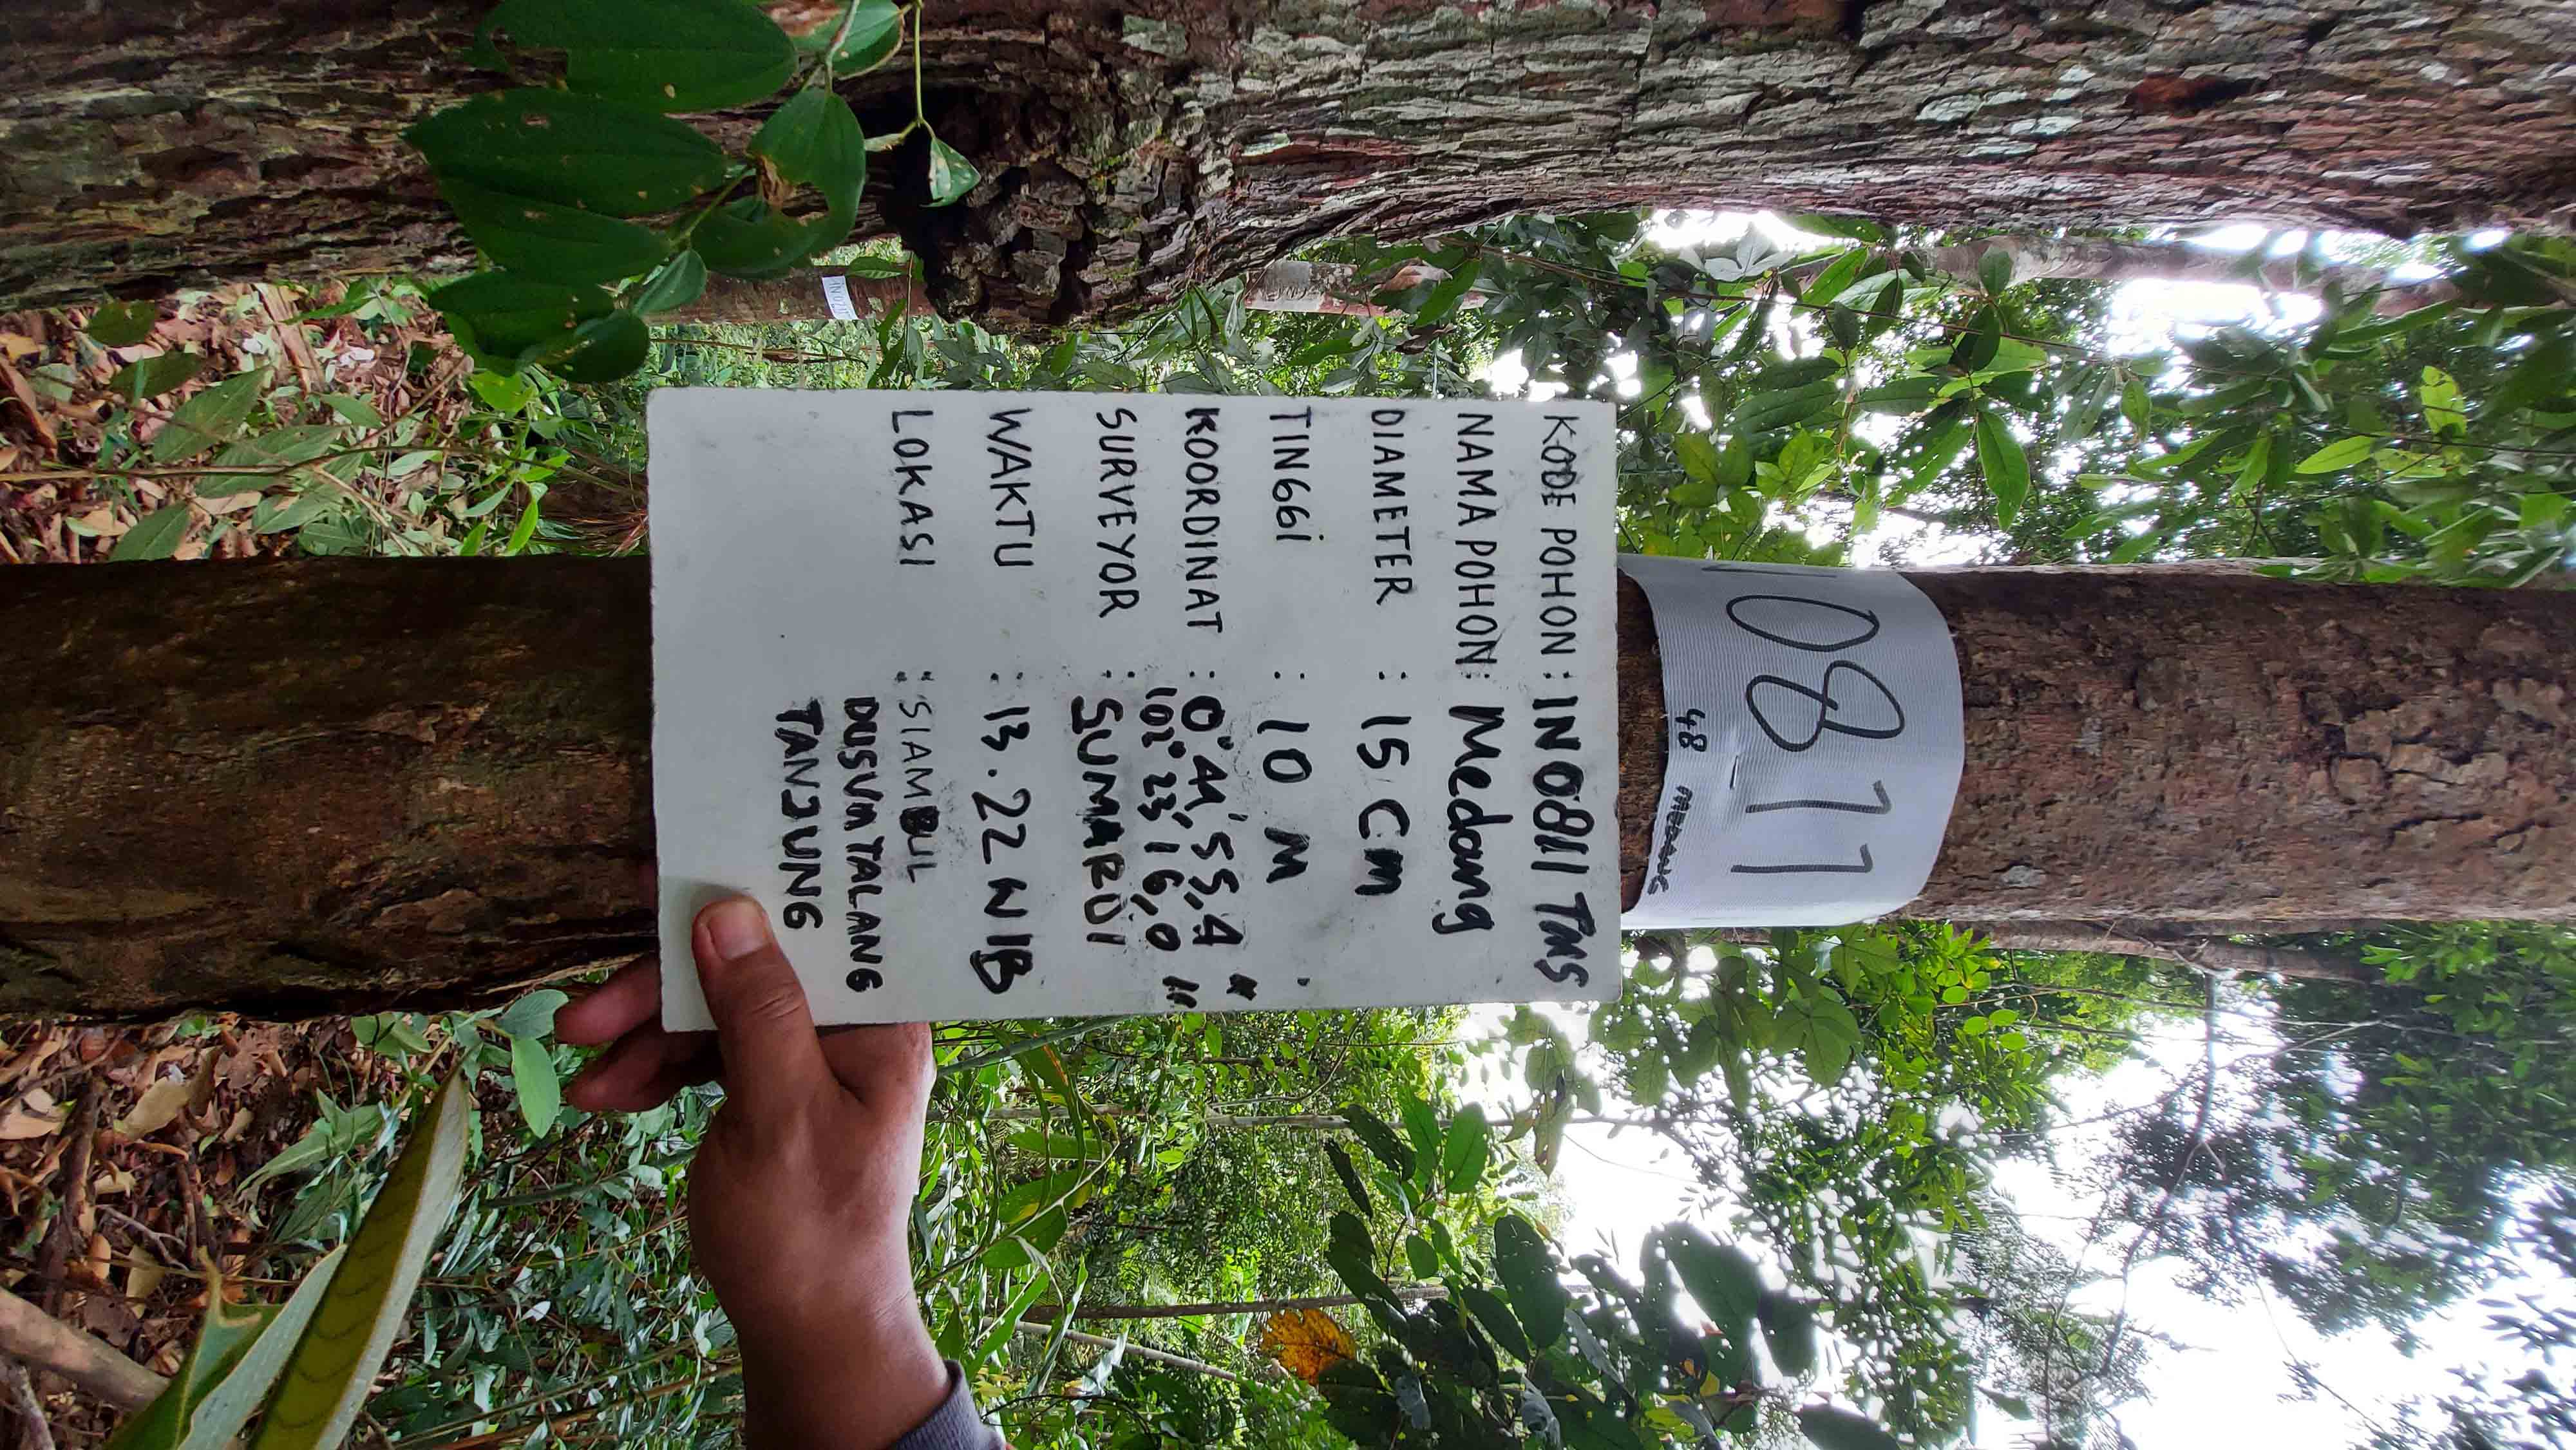 0811
48 MEDANG
KODE POHON : IN 0811 TMS
NAMA POHON : Medang
DIAMETER : 15 Cm
TINGGi : 10 M
KOORDINAT : 0° 44' 55,4"
102° 23' 16,0"
SURVEYOR : SUMARDI
WAKTU : 13.22 WIB
LOKASI : SIAMBUL
DUSUN TALANG
TANJUNG